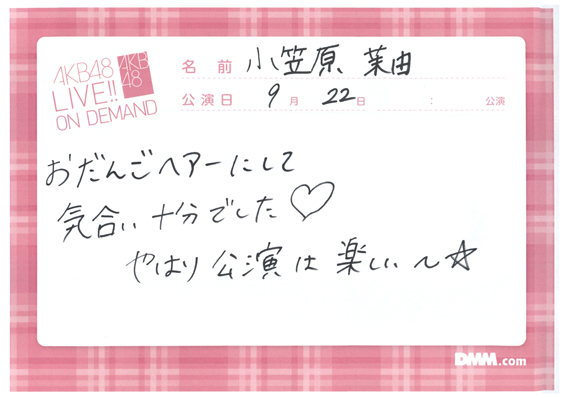 AKB48
LIVE!!
ON DEMAND
AKB
48
名前 小笠原 茉由
公演日 9月 22日 : 公演
おだんごヘアーにして
気合い十分でした♡
やはり公演は楽しい〜☆
DMM.com